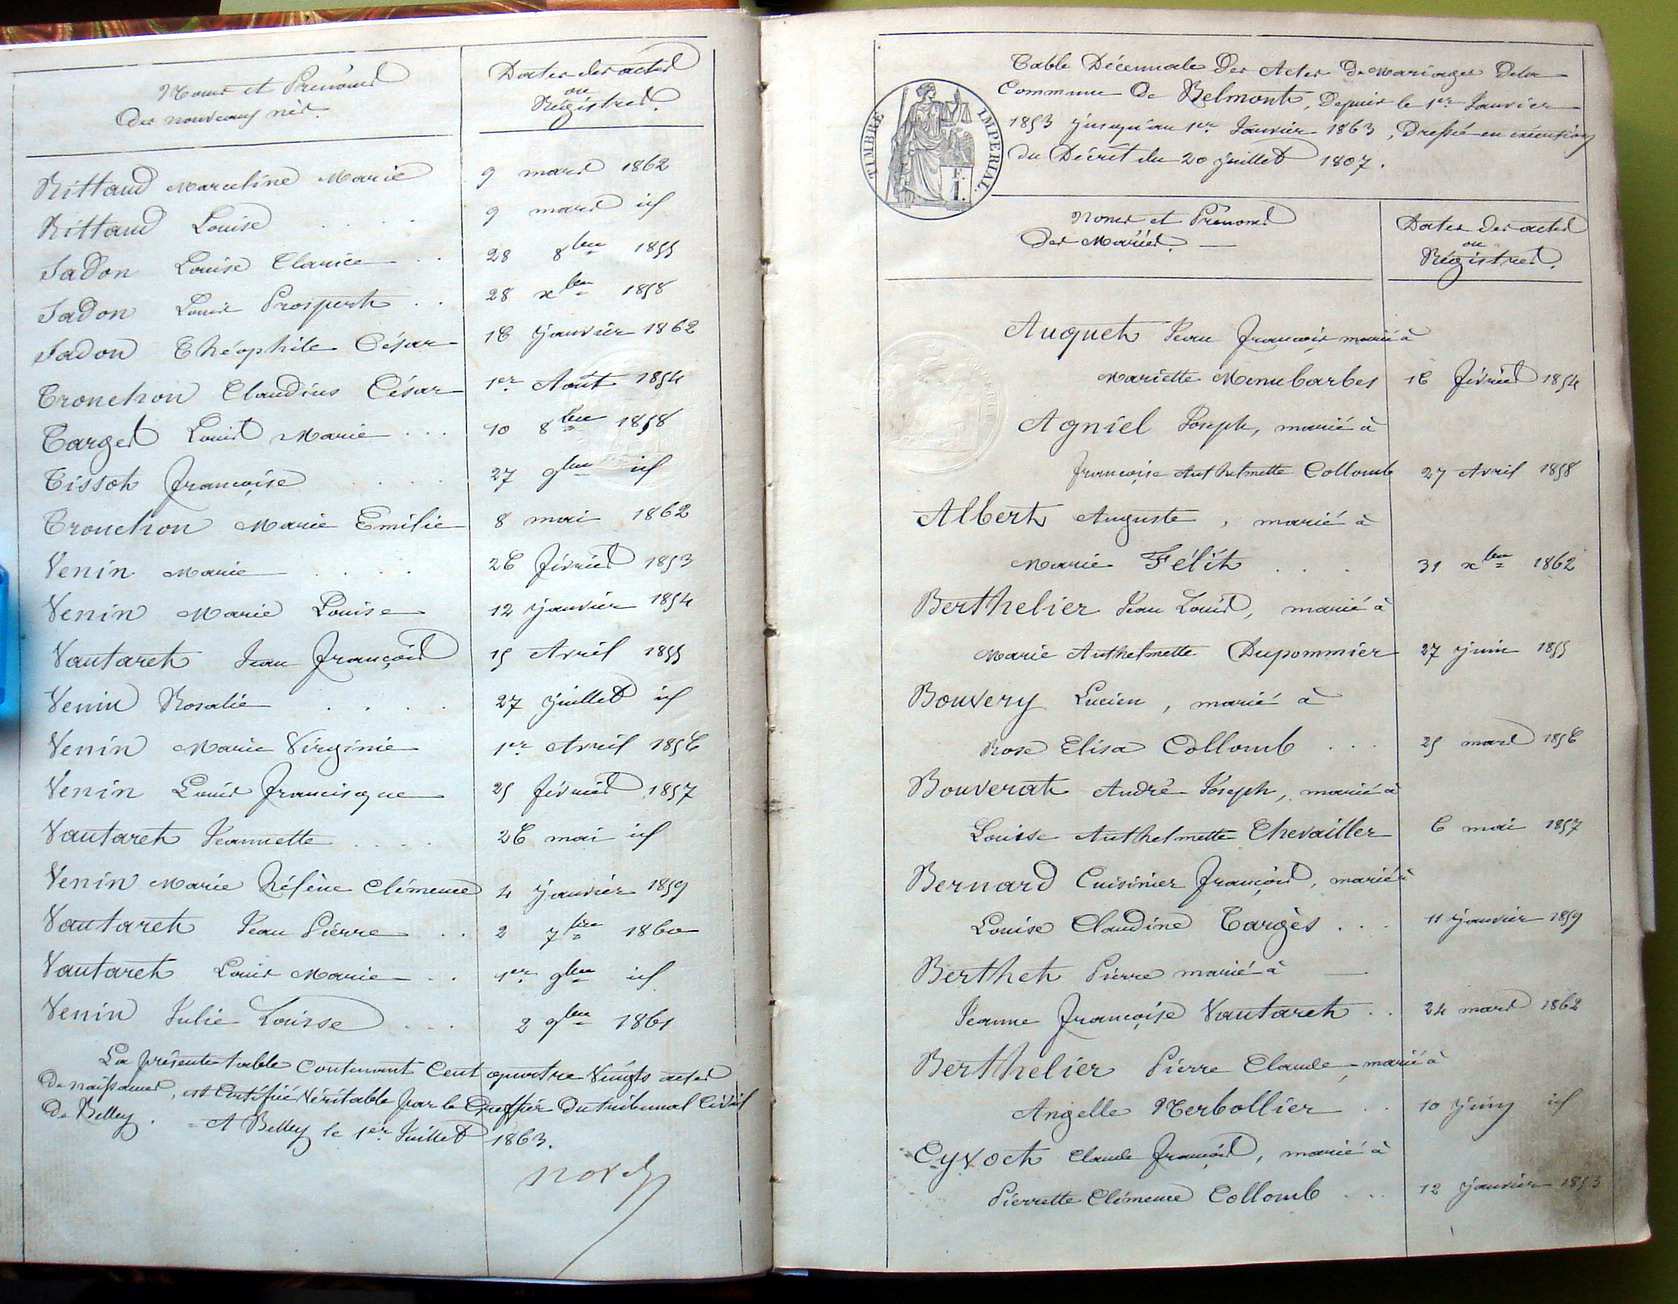 Noms et Prénoms
des nouveaux nés.
Dates des actes
ou
Régistres.
Rittaud Marceline Marie 9 mars 1862
Rittaud Louise . . . 9 mars id
Sadon Louise Clarice . . 28 8bre 1855
Sadon Louis Prosperth . . 28 xbre 1858
Sadon Théophile César 16 janvier 1862
Tronchon Claudius César 1er Août 1854
Targes Louis Marie . . . 10 8bre 1858
Tissoth Françoise . . . 27 9bre id
Tronchon Marie Emilie 8 mai 1862
Venin Marie . . . . 26 février 1853
Venin Marie Louise 12 janvier 1854
Vautareth Jean François 15 Avril 1855
Venin Rosalie . . . . 27 juillet id
Venin Marie Virginie 1er Avril 1856
Venin Louis Francisque 25 février 1857
Vautareth Jeannette . . . . 26 mai id
Venin Marie Hélène Clémence 4 janvier 1859
Vautareth Jean Pierre . . 2 7bre 1860
Vautareth Louis Marie . . 1er 9bre id
Venin Julie Louisse . . . 2 9bre 1861
La présente table contenant Cent quatre Vingts actes
de naissances, est Certifiée Véritable par le Greffier du tribunal Civil
de Belley. = A Belley le 1er Juillet 1863.
TIMBRE IMPERIAL
Table Décennale des Actes de Mariages de la
Commune de Belmont, Depuis le 1er Janvier
1853 jusqu'au 1er Janvier 1863, Dressé en exécution
du Décrêt du 20 juillet 1807.
Noms et Prénoms
des Mariés. —
Dates des actes
ou
Régistres.
Auqueth Jean François marié à
Mariette Menubarbes 16 février 1854
Agniel Joseph, marié à
Françoise Anthelmette Collomb 27 Avril 1858
Alberth Auguste, marié à
Marie Félith . . . 31 xbre 1862
Berthelier Jean Louis, marié à
Marie Anthelmette Dupommier 27 juin 1855
Bouvery Lucien, marié à
Rose Elisa Collomb . . . 25 mars 1856
Bouverath André Joseph, marié à
Louisse Anthelmette Chevailler 6 mai 1857
Bernard Cuisinier François, marié à
Louise Claudine Targès . . . 11 janvier 1859
Bertheth Pierre marié à —
Jeanne Françoise Vautareth . . 24 mars 1862
Berthelier Pierre Claude, marié à
Angelle Merbollier . . 10 juin id
Cyvoct Claude François, marié à
Pierrette Clémence Collomb . . . 12 janvier 1853